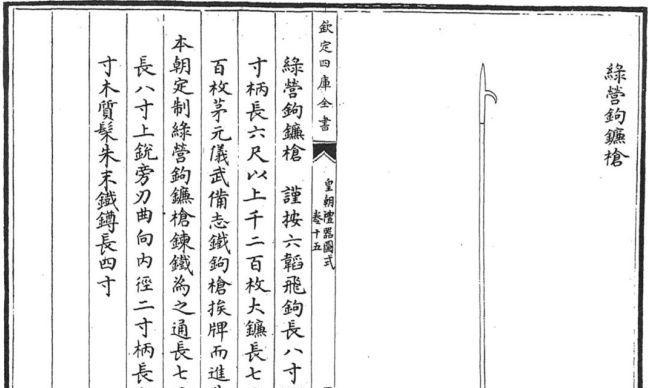 綠營鉤鐮槍
欽定四庫全書
皇朝禮器圖式
卷十五
綠營鉤鐮槍 謹按六韜飛鉤長八寸
寸柄長六尺以上千二百枚大鐮長七
百枚茅元儀武備志鐵鉤槍挨牌而進
本朝定制綠營鉤鐮槍鍊鐵為之通長七
長八寸上銳旁刃曲向内徑二寸柄長
寸木質髹朱末鐵鐏長四寸